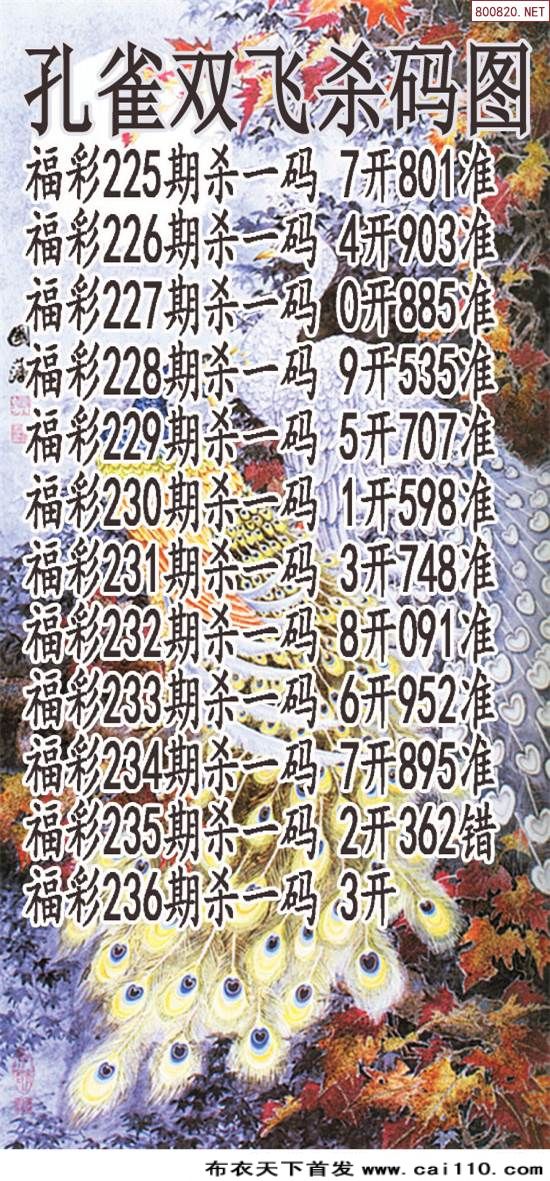 800820.NET
孔雀双飞杀码图
福彩225期杀一码 7开801准
福彩226期杀一码 4开903准
福彩227期杀一码 0开885准
福彩228期杀一码 9开535准
福彩229期杀一码 5开707准
福彩230期杀一码 1开598准
福彩231期杀一码 3开748准
福彩232期杀一码 8开091准
福彩233期杀一码 6开952准
福彩234期杀一码 7开895准
福彩235期杀一码 2开362错
福彩236期杀一码 3开
布衣天下首发 www.cai110.com